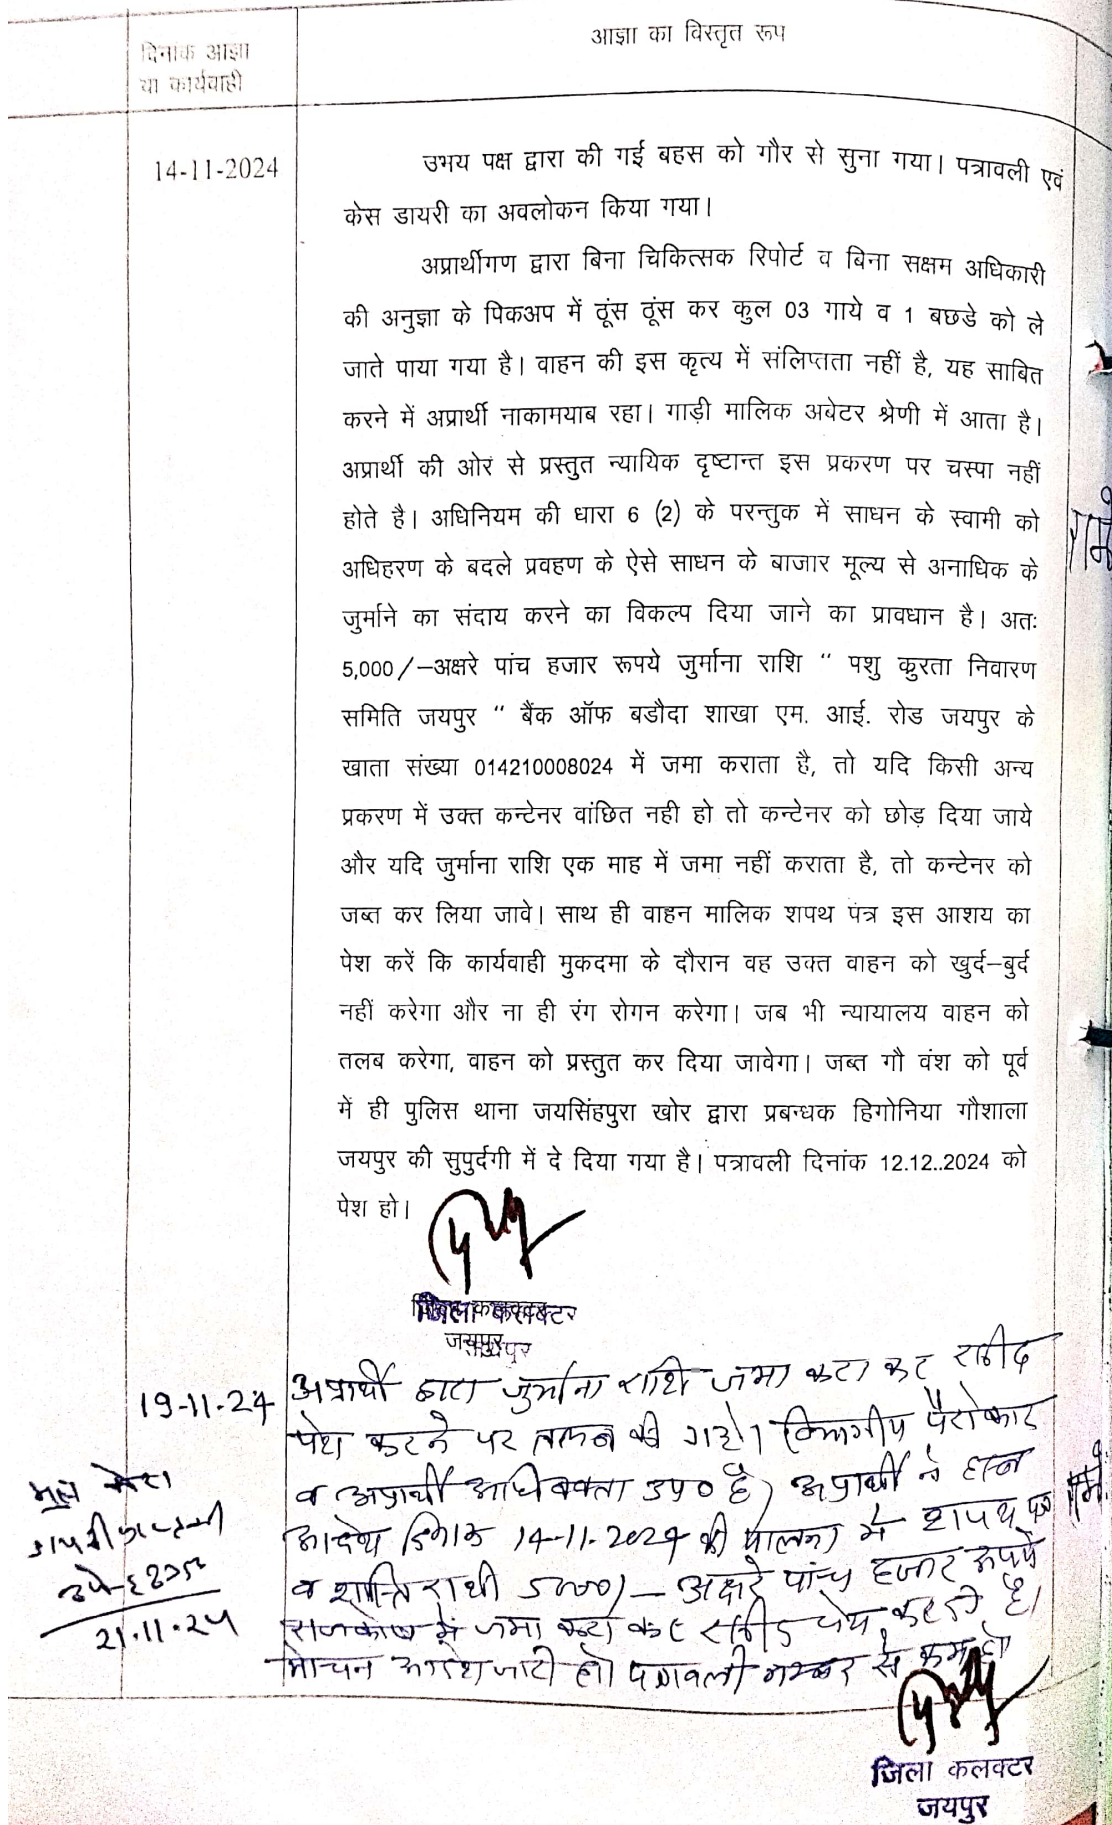 दिनांक आज्ञा
या कार्यवाही
आज्ञा का विस्तृत रूप
14-11-2024
उभय पक्ष द्वारा की गई बहस को गौर से सुना गया। पत्रावली एवं
केस डायरी का अवलोकन किया गया।
अप्रार्थीगण द्वारा बिना चिकित्सक रिपोर्ट व बिना सक्षम अधिकारी
की अनुज्ञा के पिकअप में ठूंस ठूंस कर कुल 03 गाये व 1 बछडे को ले
जाते पाया गया है। वाहन की इस कृत्य में संलिप्तता नहीं है, यह साबित
करने में अप्रार्थी नाकामयाब रहा। गाड़ी मालिक अबेटर श्रेणी में आता है।
अप्रार्थी की ओर से प्रस्तुत न्यायिक दृष्टान्त इस प्रकरण पर चस्पा नहीं
होते है। अधिनियम की धारा 6 (2) के परन्तुक में साधन के स्वामी को
अधिहरण के बदले प्रवहण के ऐसे साधन के बाजार मूल्य से अनाधिक के
जुर्माने का संदाय करने का विकल्प दिया जाने का प्रावधान है। अतः
5,000/–अक्षरे पांच हजार रूपये जुर्माना राशि " पशु क्रुरता निवारण
समिति जयपुर " बैंक ऑफ बडौदा शाखा एम. आई. रोड जयपुर के
खाता संख्या 014210008024 में जमा कराता है, तो यदि किसी अन्य
प्रकरण में उक्त कन्टेनर वांछित नही हो तो कन्टेनर को छोड़ दिया जाये
और यदि जुर्माना राशि एक माह में जमा नहीं कराता है, तो कन्टेनर को
जब्त कर लिया जावे। साथ ही वाहन मालिक शपथ पंत्र इस आशय का
पेश करें कि कार्यवाही मुकदमा के दौरान वह उक्त वाहन को खुर्द–बुर्द
नहीं करेगा और ना ही रंग रोगन करेगा। जब भी न्यायालय वाहन को
तलब करेगा, वाहन को प्रस्तुत कर दिया जावेगा। जब्त गौ वंश को पूर्व
में ही पुलिस थाना जयसिंहपुरा खोर द्वारा प्रबन्धक हिगोनिया गौशाला
जयपुर की सुपुर्दगी में दे दिया गया है। पत्रावली दिनांक 12.12..2024 को
पेश हो।
जिला कलक्टर
जयपुर
19-11-24
अप्रार्थी द्वारा जुर्माना राशि जमा करा कर रसीद
पेश करने पर तलब की गई। विभागीय पैरोकार
व अप्रार्थी अधिवक्ता उप० है। अप्रार्थी ने
आदेश दिनांक 14-11-2024 की पालना में शपथ पत्र
व शास्ति राशी 5000/– अक्षरे पांच हजार रूपये
राजकोष में जमा करा कर रसीद पेश कर दी है।
मोचन आदेश जारी हो पत्रावली नम्बर से कम हो
21.11.24
जिला कलक्टर
जयपुर